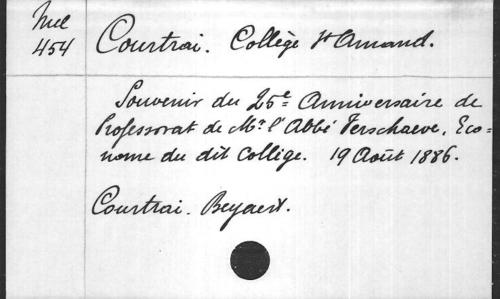 Mel
454
Courtrai. Collège St Amand.
Souvenir du 25e Anniversaire de
Professorat de Mr. l'Abbé Terschaeve, Eco=
nome du dit Collège. 19 Août 1886.
Courtrai. Beyaert.